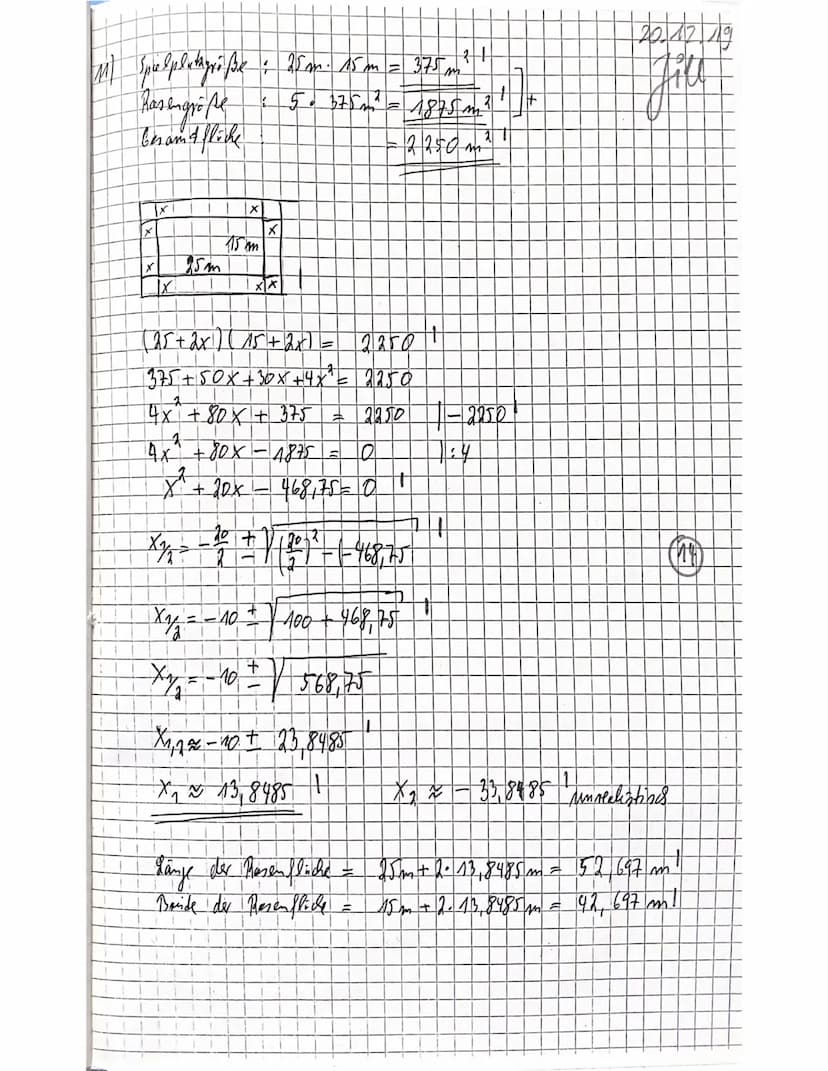 20.12.19
Jill
11) Spielplatzgröße : 25m · 15m = 375m² |
Rasengröße : 5 · 375m² = 1875m² | ] +
Gesamtfläche : = 2250 m² |
x x
x x
15m
x 25m
x x x |
(25+2x)(15+2x) = 2250 |
375+50x+30x+4x² = 2250
4x² + 80x + 375 = 2250 | - 2250 |
4x² + 80x - 1875 = 0 | : 4
x² + 20x - 468,75 = 0 |
x1/2 = - 20/2 ± √(20/2)² - (-468,75 |
14
x1/2 = -10 ± √100 + 468,75 |
x1/2 = -10 ± √568,75
x1,2 ≈ -10 ± 23,8485 |
x1 ≈ 13,8485 | x2 ≈ - 33,8485 | unrealistisch
Länge der Rasenfläche = 25m + 2 · 13,8485m = 52,697 m |
Breite der Rasenfläche = 15m + 2 · 13,8485m = 42,697 m |